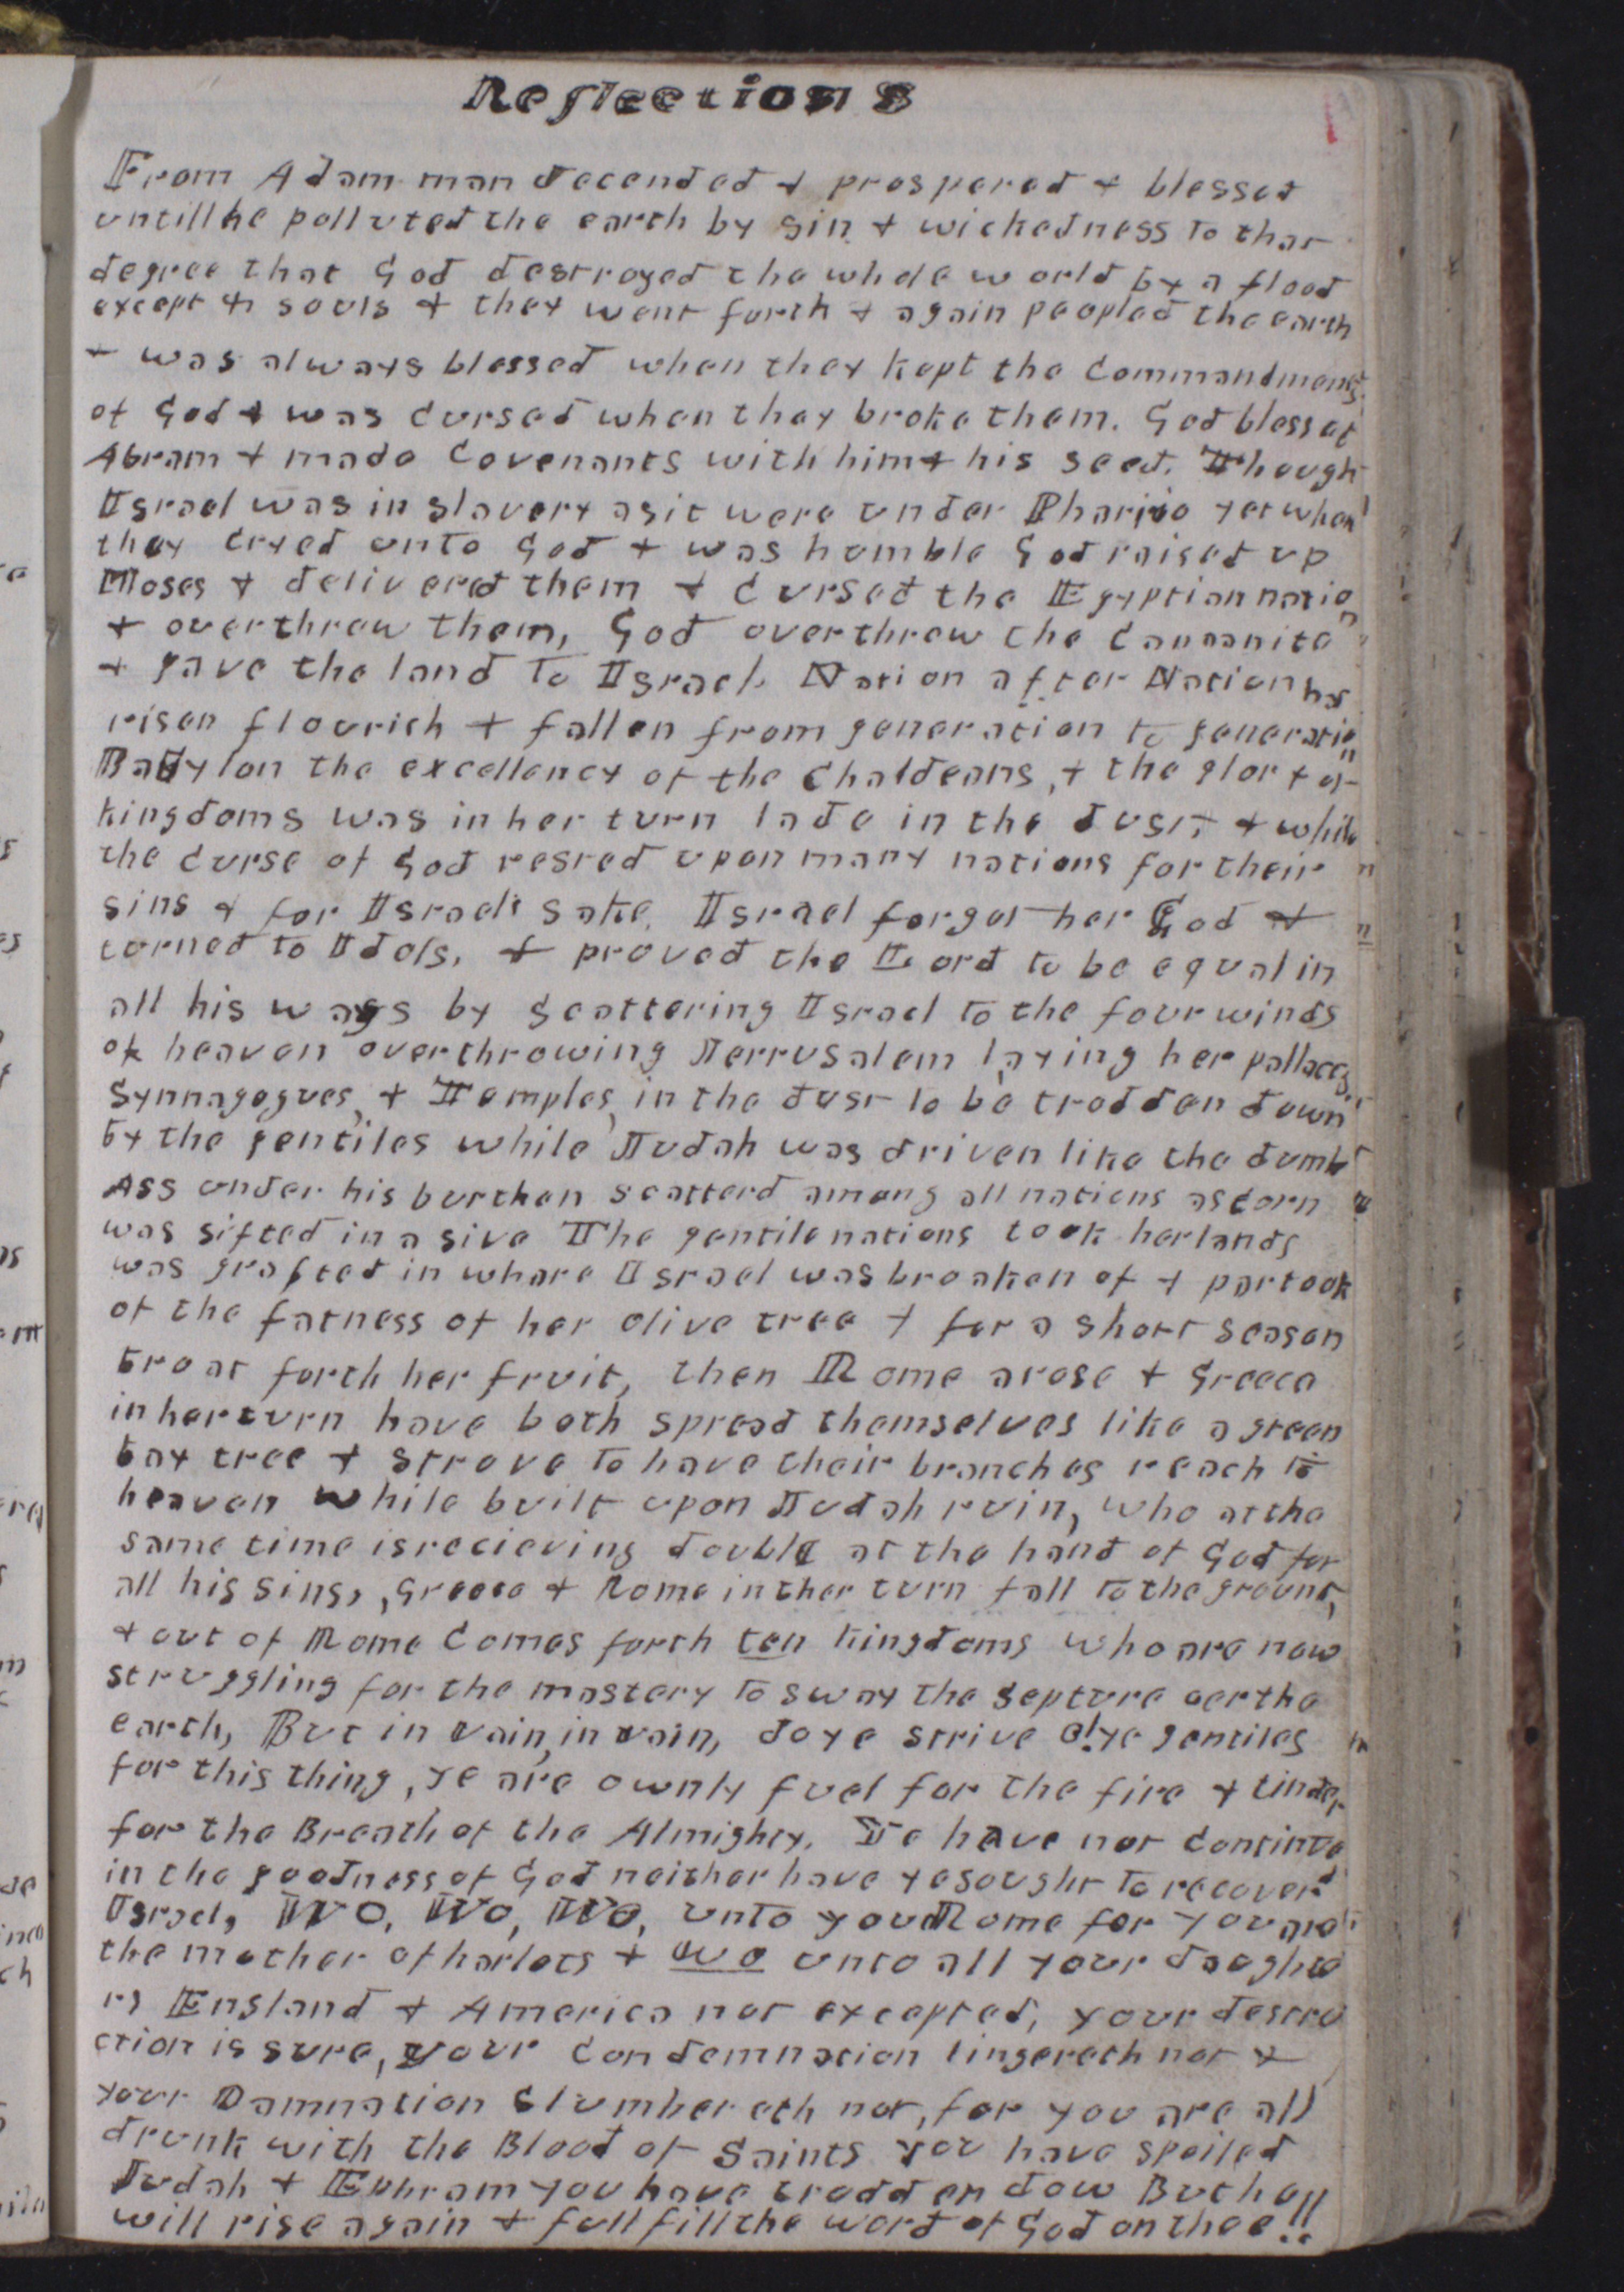 Reflections
From Adam man decended & prospered & blessed
untill he polluted the earth by sin & wickedness to that
degree that God destroyed the whole world by a flood
except souls & they went forth & again peopled the earth
& was always blessed when they kept the Commandments
of God & was cursed when thay broke them. God blessed
Abram & made Covenants with him & his seed. Though
Israel was in slavery as it were under Phario yet when
thay cryed unto God & was humble God raised up
Moses & delivered them & cursed the Egyptian nation
& overthrew them, God overthrew the Cannanite
& gave the land to Israel. Nation after Nation has
risen flourich & fallen from generation to generation
Babylon the excellency of the Chaldeans, & the glory of
kingdoms was in her turn lade in the dust, & while
the curse of God rested upon many nations for their
sins & for Israels sake. Israel forgot her God &
turned to Idols. & proved the Lord to be equal in
all his ways by scattering Israel to the four winds
of heaven overthrowing Jerrusalem laying her pallaces,
Synnagogues, & Temples, in the dust to be trodden down
by the gentiles while Judah was driven like the dumb
Ass under his burthen scatterd among all nations as corn
was sifted in a sive The gentile nations took her lands
was grafted in whare Israel was broaken of & partook
of the fatness of her olive tree & for a short season
broat forth her fruit, then Rome arose & Greece
in her turn have both spread themselves like a green
bay tree & strove to have their branches reach to
heaven while built upon Judah ruin, who at the
same time is recieving double at the hand of God for
all his sins, Greece & Rome in ther turn fall to the ground,
& out of Rome Comes forth ten kingdoms who are now
struggling for the mastery to sway the septure oer the
earth, But in vain, in vain, do ye strive O! ye gentiles
for this thing, ye are ownly fuel for the fire & tinder
for the Breath of the Almighty. Ye have not continued
in the goodness of God neither have ye sought to recover
Israel, Wo, Wo, Wo, unto you Rome for you are
the mother of harlots & wo unto all your daughte
rs England & America not excepted, your destru
ction is sure, your Condemnation lingereth not &
your Damnation slumbereth not, for you are all
drunk with the Blood of Saints you have spoiled
Judah & Ephram you have trodden dow But he
will rise again & fullfill the word of God on thee!!